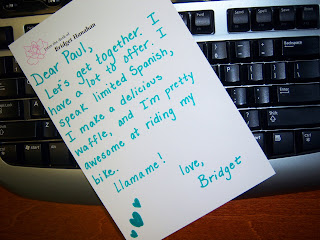 from the desk of
Bridget Hanahan
Dear Paul,
Let's get together. I
have a lot to offer. I
speak limited Spanish,
I make a delicious
waffle, and I'm pretty
awesome at riding my
bike.
Llamame!
love,
Bridget